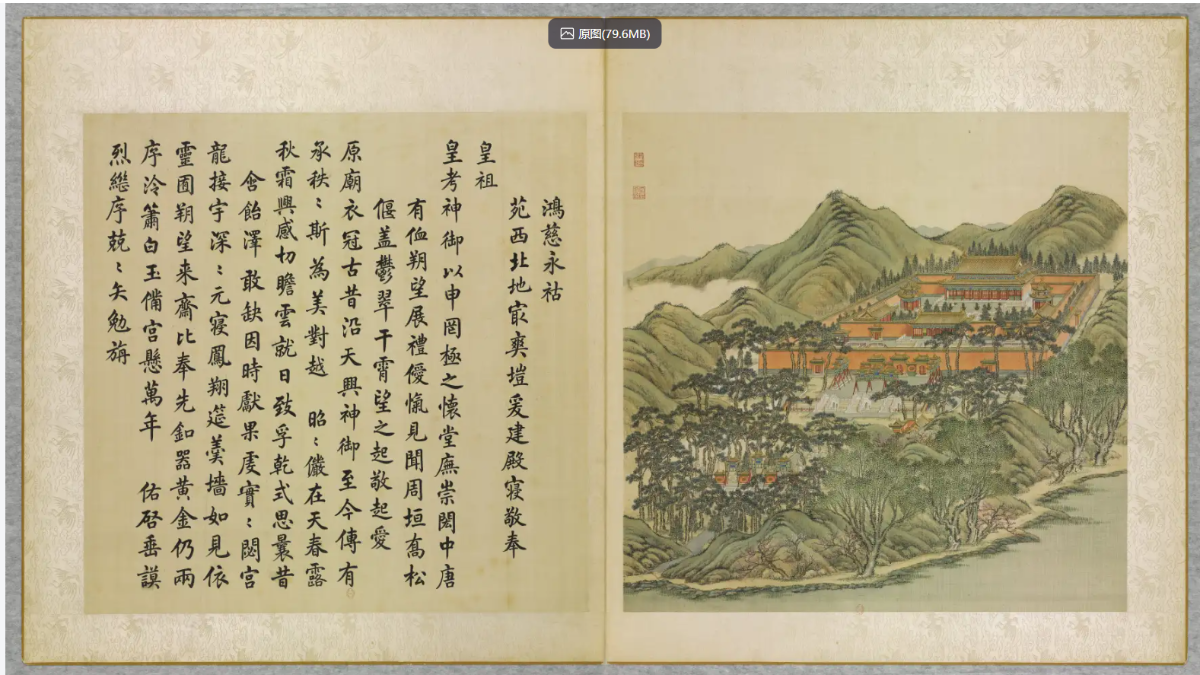 原图(79.6MB)
鴻慈永祜
苑西北地㝡爽塏爰建殿寢敬奉
皇祖
皇考神御以申罔極之懷堂廡崇閎中唐
有侐朔望展禮優愾見聞周垣喬松
偃蓋鬱翠干霄望之起敬起愛
原廟衣冠古昔沿天興神御至今傳有
承秩〻斯為美對越昭〻儼在天春露
秋霜興感切瞻雲就日致孚乾式思曩昔
含飴澤敢缺因時獻果虔實〻閟宮
龍接宇深〻元寢鳳翔筵羹墻如見依
靈囿朔望来齋比奉先釦器黃金仍兩
序泠簫白玉備宮懸萬年佑啓垂謨
烈繼序兢〻矢勉旃